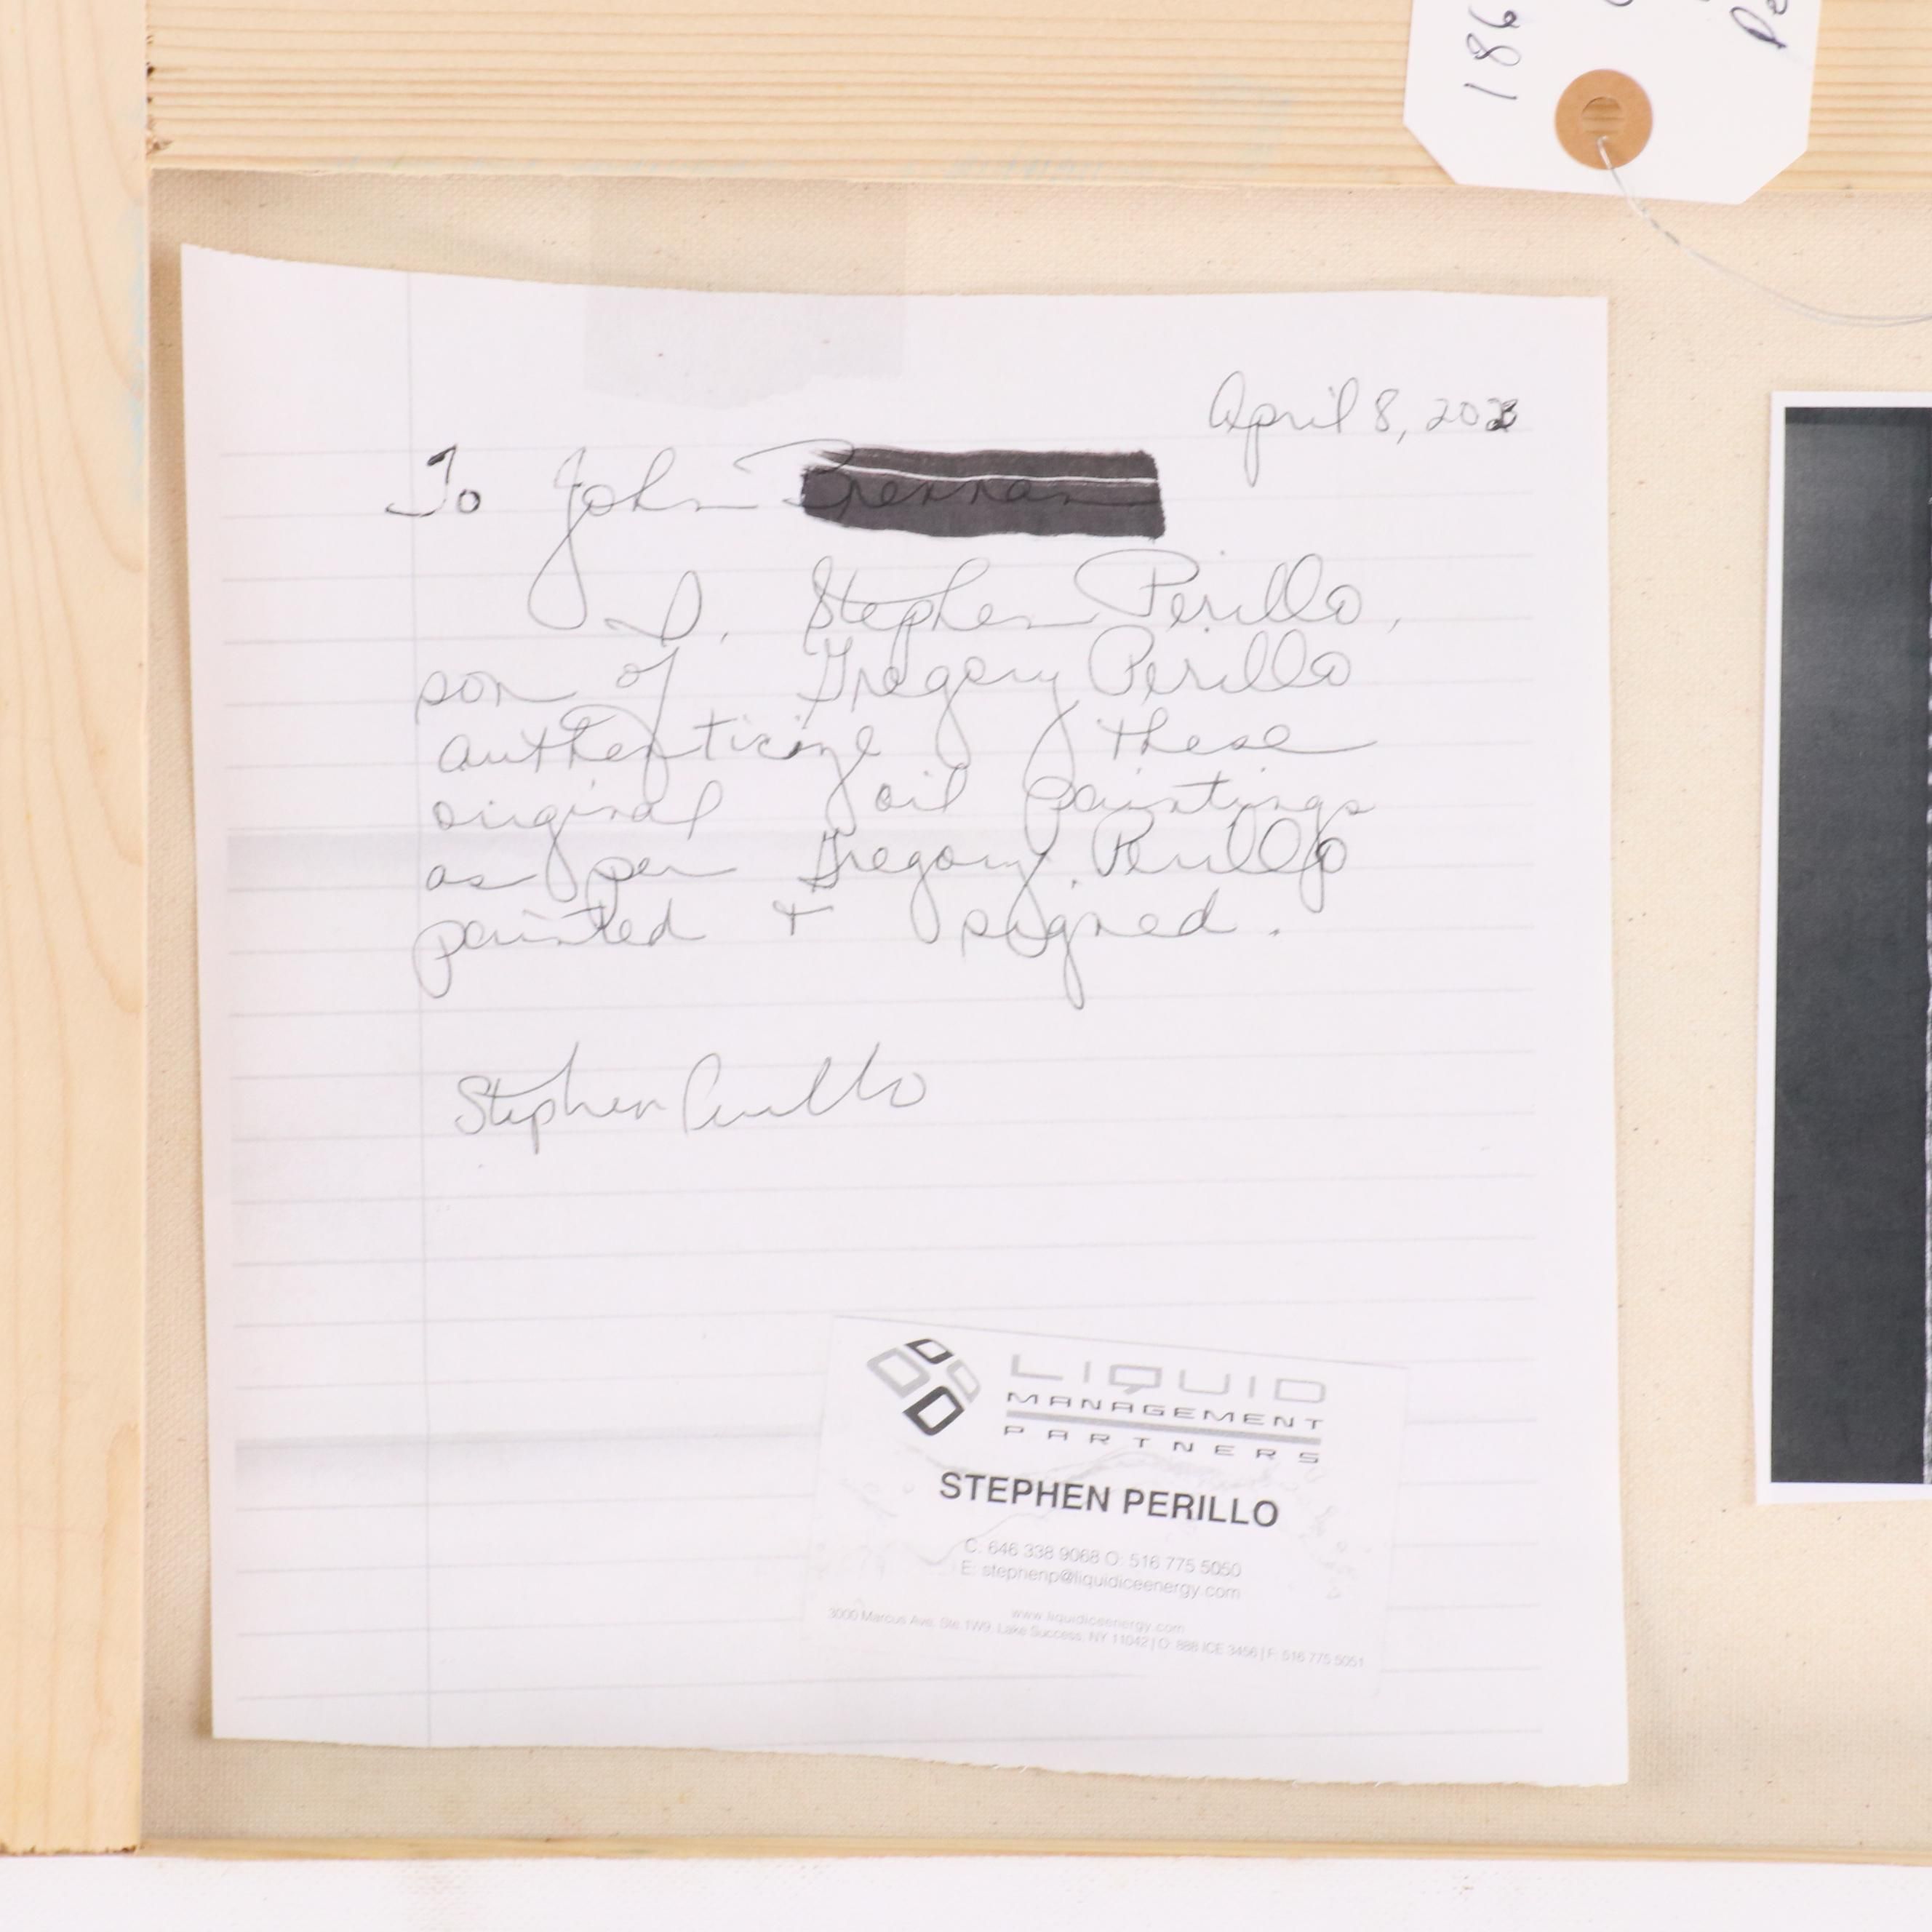 186
April 8, 2023
To John
I, Stephen Perillo,
son of Gregory Perillo
authenticize these
original oil paintings
as per Gregory Perillo
painted + signed.
Stephen Perillo
LIQUID
MANAGEMENT
PARTNERS
STEPHEN PERILLO
C: 646 338 9068 O: 516 775 5050
E: stephenp@liquidiceenergy.com
www.liquidiceenergy.com
3000 Marcus Ave. Ste 1W9. Lake Success, NY 11042 | O: 888 ICE 3456 | F: 516 775 5051